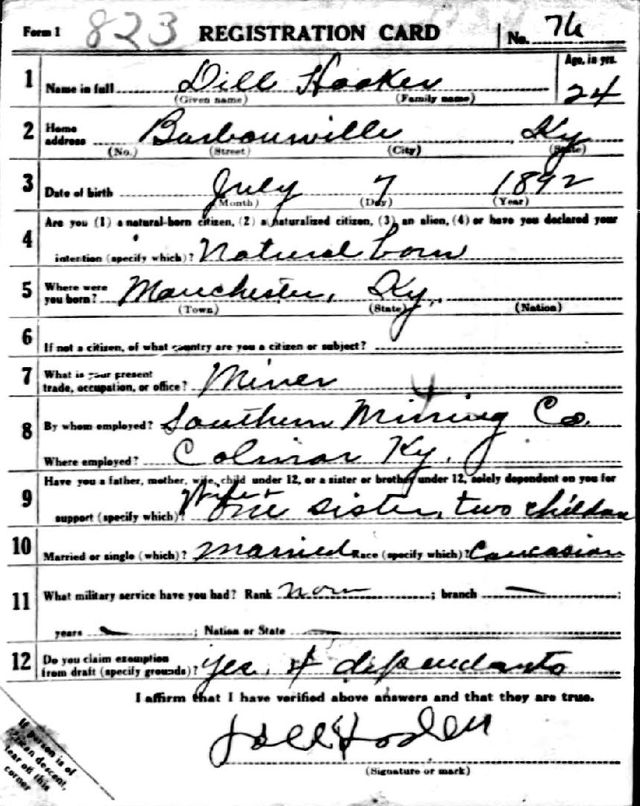 Form 1 823 REGISTRATION CARD No. 76
1 Name in full Dill Hooker Age, in yrs. 24
(Given name) (Family name)
2 Home address Barbourville Ky
(No.) (Street) (City) (State)
3 Date of birth July 7 1892
(Month) (Day) (Year)
4 Are you (1) a natural-born citizen, (2) a naturalized citizen, (3) an alien, (4) or have you declared your
intention (specify which)? Natural born
5 Where were you born? Manchester, Ky.
(Town) (State) (Nation)
6 If not a citizen, of what country are you a citizen or subject?
7 What is your present trade, occupation, or office? Miner
8 By whom employed? Southern Mining Co.
Where employed? Colmar Ky.
9 Have you a father, mother, wife, child under 12, or a sister or brother under 12, solely dependent on you for
support (specify which)? Wife + one sister, two children
10 Married or single (which)? Married Race (specify which)? Caucasian
11 What military service have you had? Rank non ; branch — ;
years — ; Nation or State —
12 Do you claim exemption from draft (specify grounds)? Yes, dependants
I affirm that I have verified above answers and that they are true.
(Signature or mark)
If person is of
African descent,
tear off this
corner